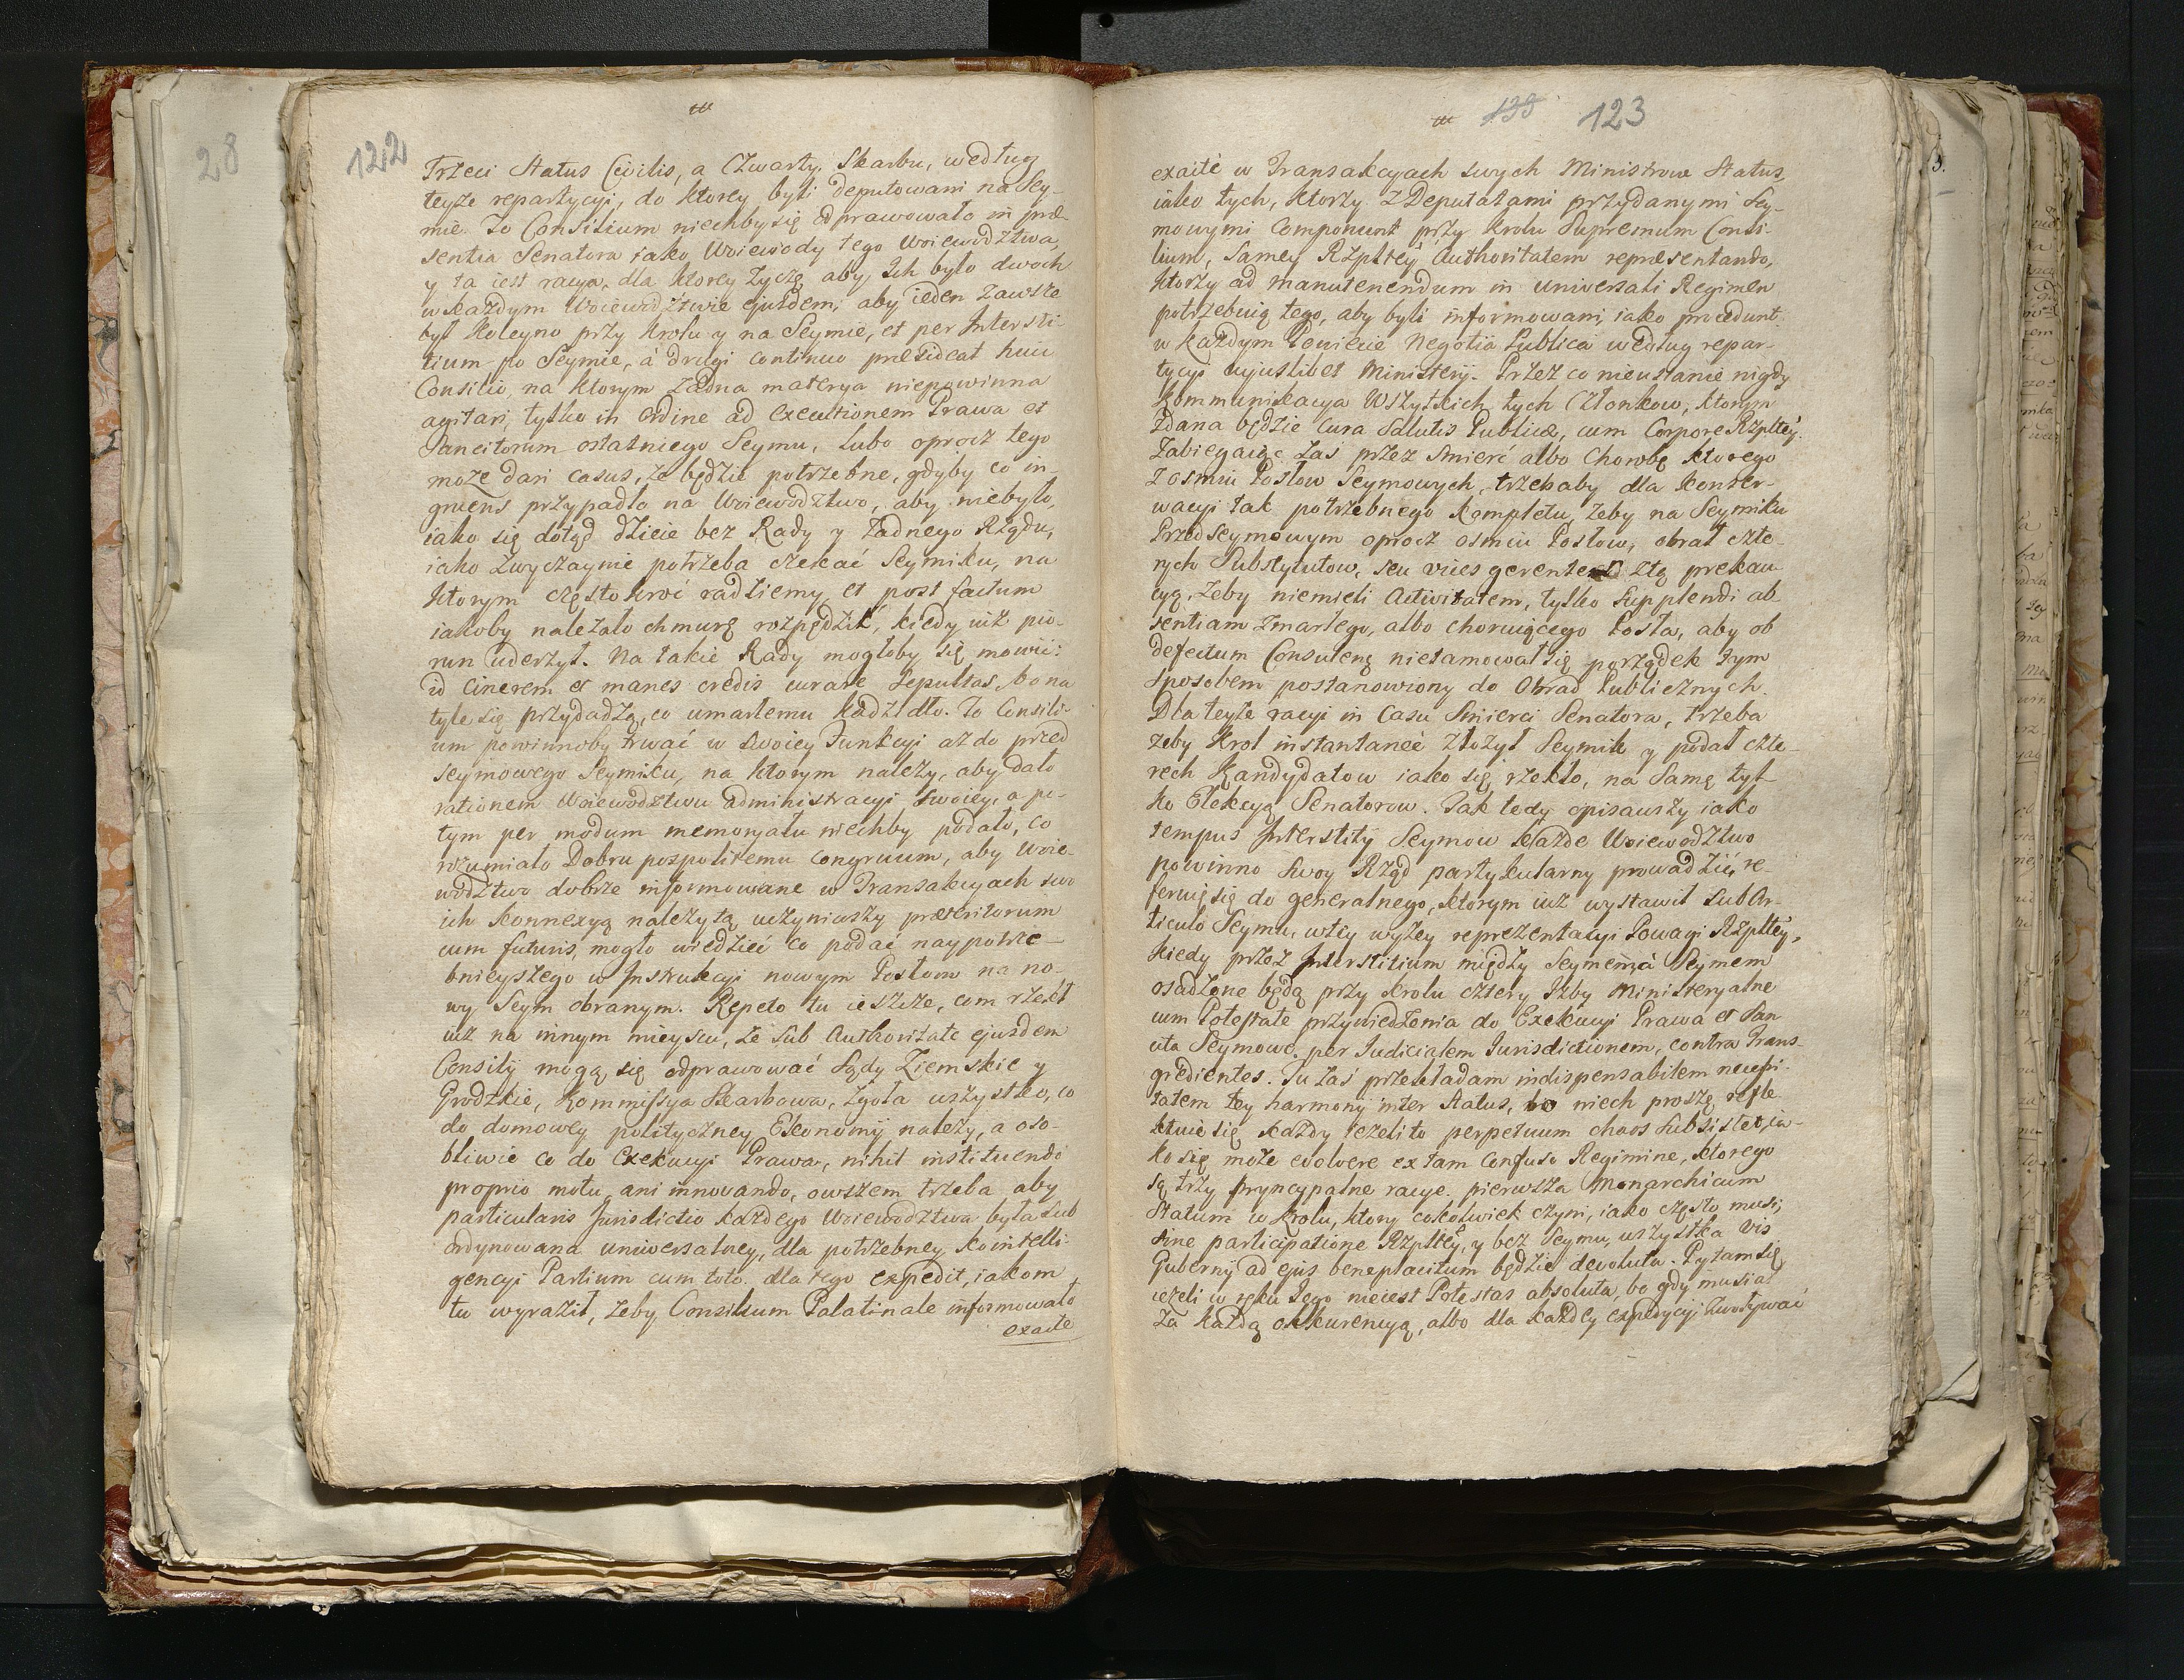 28
122
Trzeci Status Civilis, a Czwarty, Skarbu, według
teyże repartycyi, do ktorey byli deputowani na Sey-
mie. To Consilium niechby się odprawowało in præ-
sentia Senatora iako Woiewody tego Woiewodztwa,
y ta iest racya, dla ktorey życzę, aby Ich było dwoch
w każdym Woiewodztwie ejusdem, aby ieden zawsze
był koleyno przy Krolu y na Seymie, et per Intersti-
tium po Seymie, à drugi continuo præsideat huic
Consilio, na ktorym żadna materya niepowinna
agitari, tylko in ordine ad Executionem Prawa et
Sancitorum ostatniego Seymu, lubo oprocz tego
może dari casus, że będzie potrzebne, gdyby co in-
gruens przypadło na Woiewodztwo, aby niebyło,
iako się dotąd dzieie bez Rady y żadnego Rządu,
iako zwyczaynie potrzeba czekać Seymiku, na
ktorym częstokroć radziemy et post factum
iakoby należało chmurę rozpędzić, kiedy iuż pio-
run uderzył. Na takie Rady mogłoby się mowić:
id Cinerem et manes credis curare sepultos, bo na
tyle się przydadzą, co umarłemu kadzidło. To Consili-
um powinnoby trwać w swoiey Funkcyi aż do przed
seymowego Seymiku, na ktorym należy, aby dało
rationem Woiewodztwu administracyi swoiey, a po-
tym per modum memoryału niechby podało, co
rozumiało Dobru pospolitemu congruum, aby Woie-
wodztwo dobrze informowane w Transakcyach swo
ich konnexyą należytą uczyniwszy præteritorum
cum futuris, mogło wiedzieć co podać naypotrze-
bnieyszego w Instrukcyi nowym Posłom na no-
wy Seym obranym. Repeto tu ieszcze, com rzekł
iuż na innym mieyscu, że sub Authoritate ejusdem
Consilij mogą się odprawować Sądy Ziemskie y
Grodzkie, Kommissya Skarbowa, zgoła wszystko, co
do domowey polityczney Ekonomij należy, a oso-
bliwie co do Exekucyi Prawa, nihil instituendo
proprio motu, ani innovando, owszem trzeba aby
particularis Jurisdictio każdego Woiewodztwa była sub
ordynowana uniwersalney, dla potrzebney kointelli-
gencyi Partium cum toto. dla tego expedit, iakom
tu wyraził, żeby Consilium Palatinale informowało
exacte
139 123
exacte w Transakcyach swych Ministrow Status,
iako tych, ktorzy z Deputatami przydanymi Sey-
mowymi componunt przy Krolu Supremum Consi-
lium, samey Rzpltey Authoritatem repræsentando,
ktorzy ad manutenendum in universali Regimen
potrzebuią tego, aby byli informowani, iako procedunt
w każdym Powiecie Negotia Publica według repar-
tycyi cujuslibet Ministerij. Przez co nieustanie nigdy
Kommunikacya Wszytkich tych Członkow, ktorym
zdana będzie cura Salutis Publicæ, cum Corpore Rzpltey.
Zabiegaiąc zaś przez śmierć albo chorobę ktorego
z osmiu Posłow Seymowych, trzebaby dla konser-
wacyi tak potrzebnego kompletu, żeby na Seymiku
Przedseymowym oprocz osmiu Posłow, obrał czte-
rych Substytutow, seu vices gerentes z tą prekau
cyą, żeby niemieli Activitatem, tylko supplendi ab
sentiam zmarłego, albo choruiącego Posła, aby ob
defectum Consulens nietamował się porządek tym
sposobem postanowiony do Obrad Publicznych.
Dla teyże racyi in casu Smierci Senatora, trzeba
żeby Krol instantaneè złożył Seymik y podał czte-
rech Kandydatow iako się rzekło, na samą tyl-
ko Elekcyą Senatorow. Tak tedy opisawszy iako
tempus Interstitij Seymow każde Woiewodztwo
powinno swoy Rząd partykularny prowadzić, re-
feruiąc się do generalnego, ktorym iuż wystawił sub Ar-
ticulo Seymu, w tey wyżey reprezentacyi Powagi Rzpltey,
kiedy przez Interstitium między Seymem, à Seymem
osadzone będą przy Krolu cztery Izby Ministeryalne
cum Potestate przywiedzenia do Exekucyi Prawa et San
cita Seymowe, per Judicialem Jurisdictionem, contra Trans-
gredientes. Tu zaś przekładam indispensabilem necessi-
tatem tey harmonij inter Status, bo niech proszę refle
ktuie się każdy ieżeli to perpetuum chaos subsistet, ia-
ko się może evolvere ex tam confuso Regimine, ktorego
są trzy pryncypalne racye. pierwsza Monarchicum
Statum w Krolu, ktory cokolwiek czyni, iako często musi,
sine participatione Rzpltey, y bez Seymu, wszystka vis
Gubernij ad ejus beneplacitum będzie devoluta. Pytam się
ieżeli w ręku Jego nieiest Potestas absoluta, bo gdy musiał
za każdą okkurencyą, albo dla każdey expedycyi zwoływać